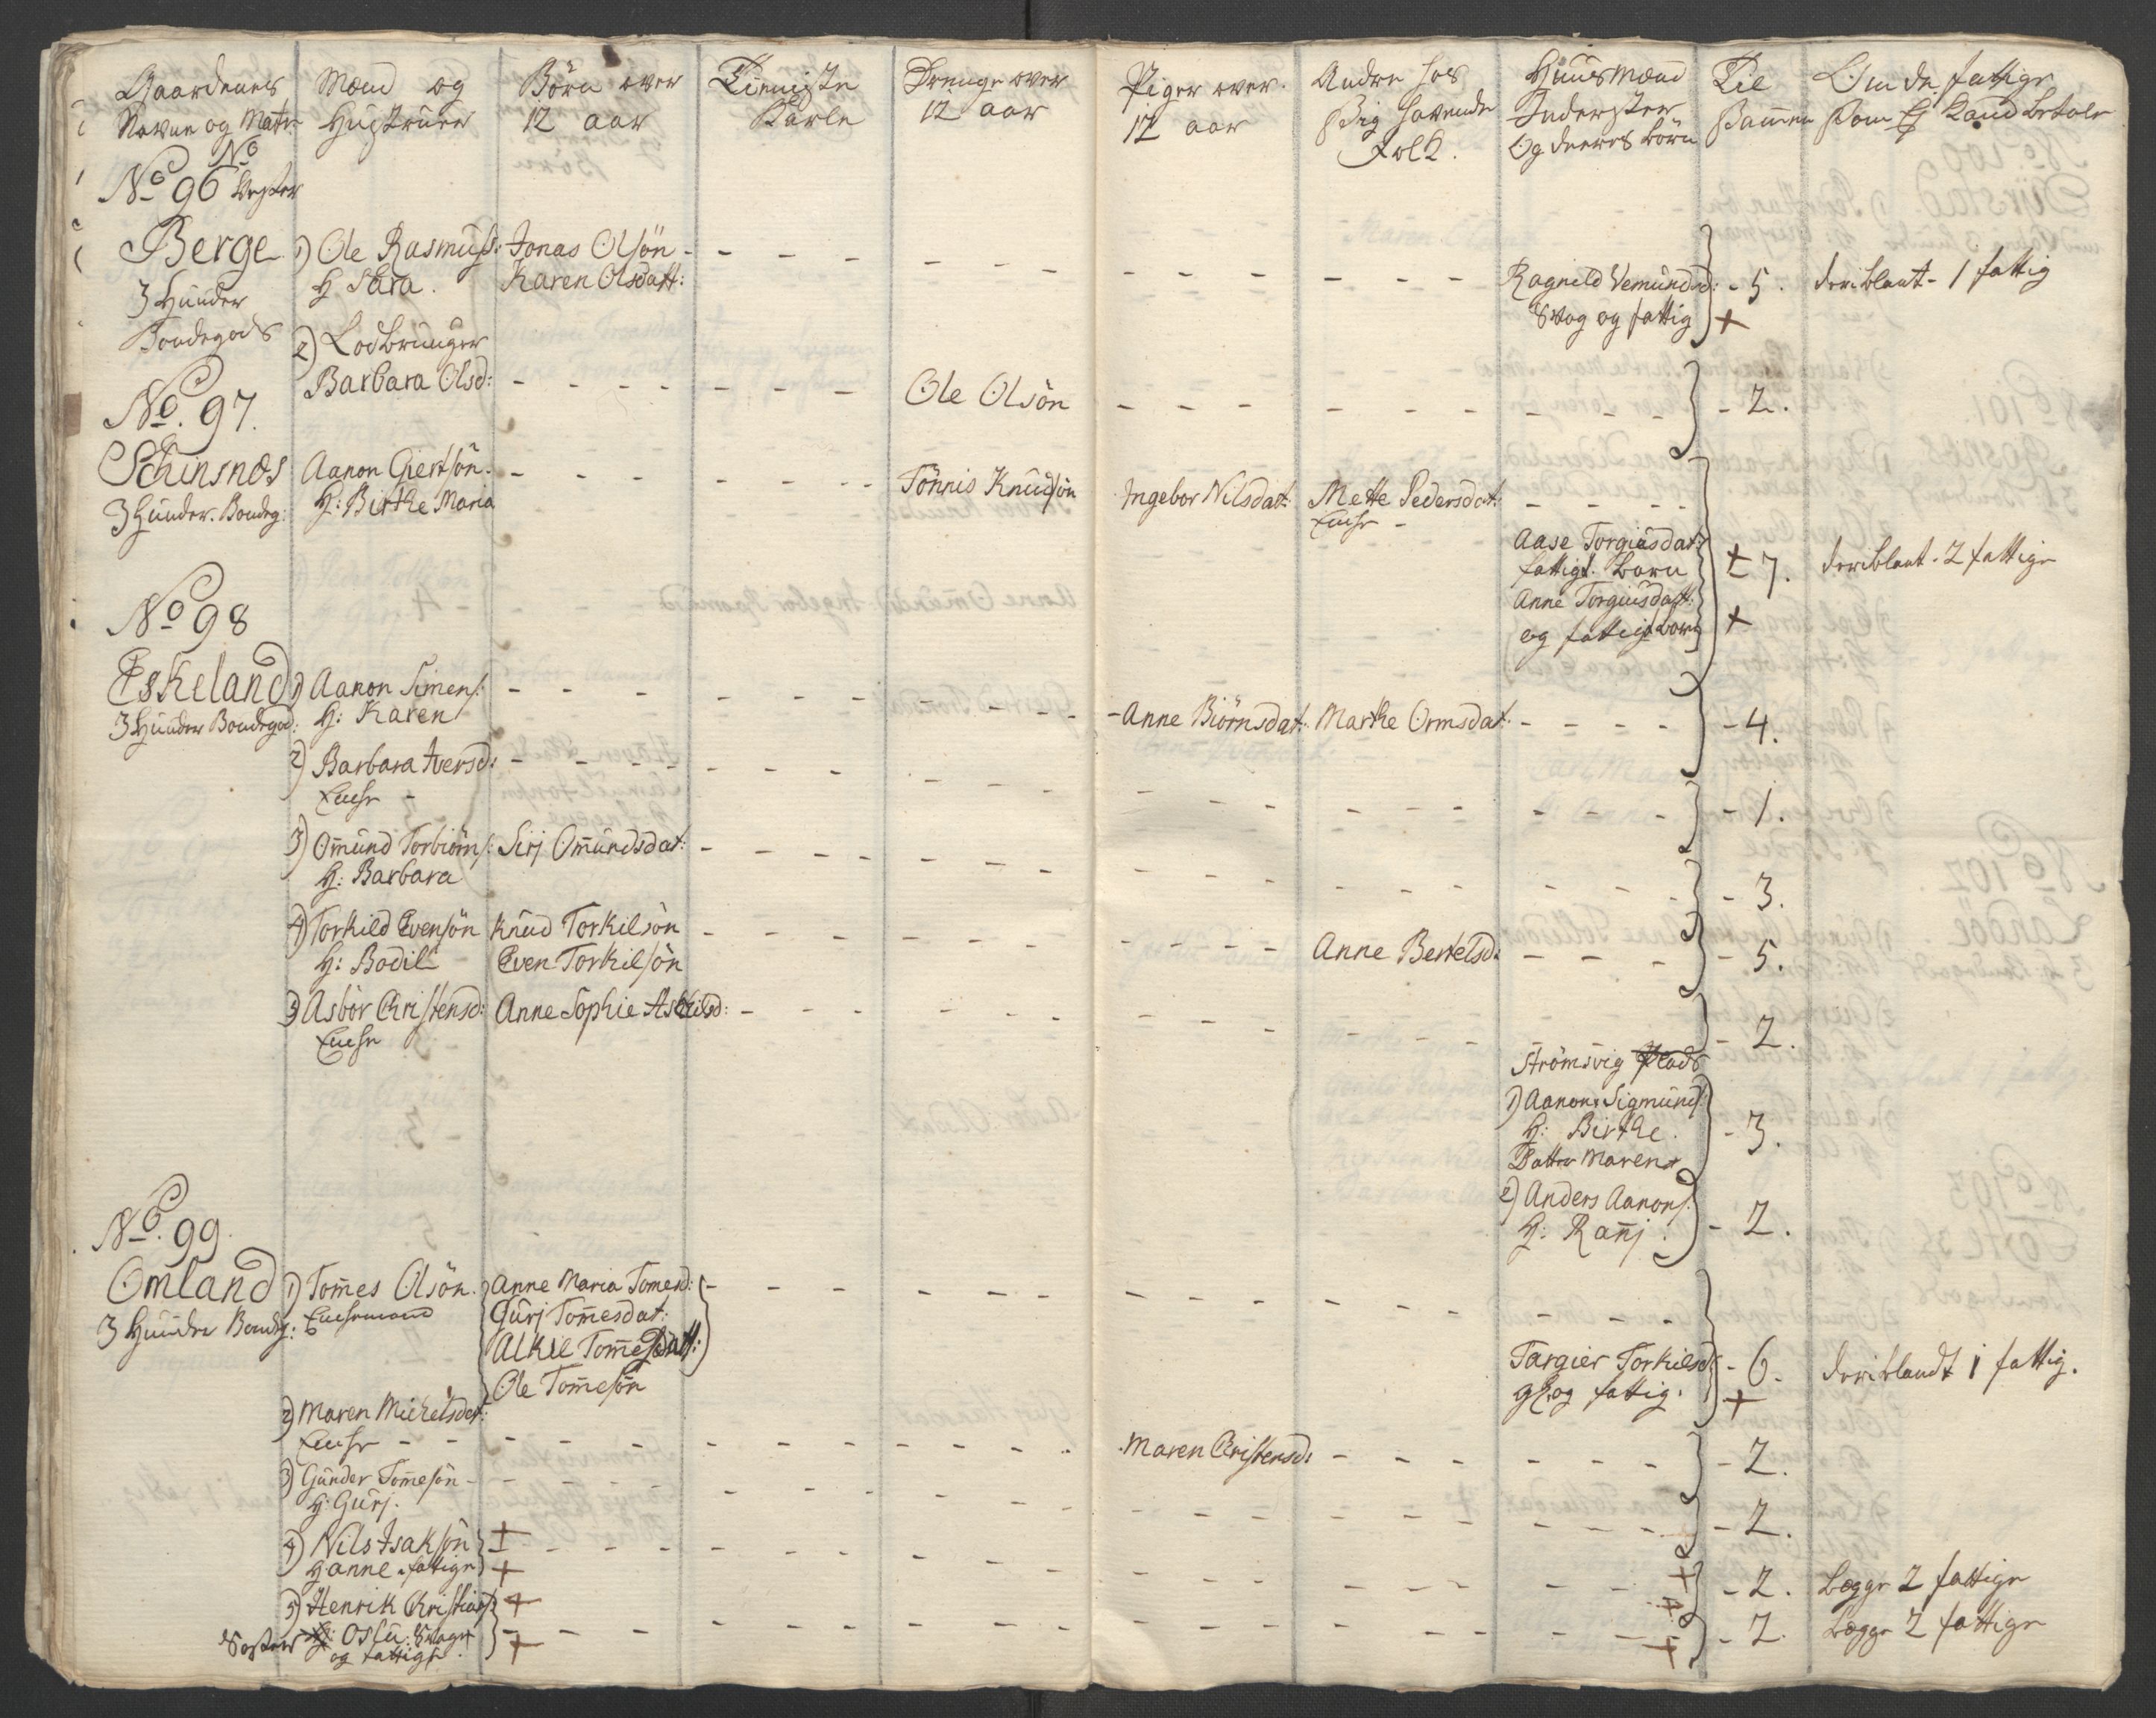 Gaardenes
Navne og Matr
No
Mænd og
Hustruer
Börn over
12 aar
Tienniste
Karle
Drenge over
12 aar
Piger over
12 aar
Andre hos
Sig havende
Folk.
Huusmænd
Inderster
Og deeres börn
Til
Sammen
Om de fattige
Som Ej Kand betale
No 96 Vester
Berge
3 Huuder
Bondegods
1) Ole Rasmuss:
H Sara.
Jonas Olsön
Karen Olsdatt:
Ragnild Vemundsd:
Svag og fattig
- 5.
+
deriblant - 1 fattig
2) Lodbruuger
Barbara Olsd:
Ole Olsön
- 2.
No. 97.
Schinsnæs
3 Huuder. Bondeg:
Aanon Giertsön.
H: Birthe Maria
Tönnis Knudsön
Ingebor Nilsdat:
Mette Pedersdat:
Enche -
Aase Torgiusdat:
fattigt. Barn
Anne Torgiusdatt:
og fattig
+ 7.
+
deriblant. 2 fattige
No 98
Eskeland
3 Huuder Bondegod:
1) Aanon Simens:
H: Karen
- Anne Biörnsdat:
Marthe Ormsdat:
- 4.
2) Barbara Iversd:
Enche -
- 1.
3) Omund Torbiörns:
H: Barbara
Sirj Omundsdat:
- 3.
4) Torkild Evensön
H: Bodil
Knud Torkilsön
Even Torkilsön
Anne Bertelsd:
- 5.
5) Asbör Christensd:
Enche
Anne Sophie Askilsd:
- 2.
Strömsvig Plads
1) Aanon Sigmunds:
H: Birthe.
Datter Maren
- 3.
2) Anders Aanons:
H: Ranj.
- 2.
No. 99.
Omland
3 Huudre Bondeg:
1) Tomes Olsön.
Enchemand
Anne Maria Tomesd:
Gurj Tomesdat:
Alkie Tomesdatt:
Ole Tomesön
Targier Torkilsd:
og fattig.
- 6.
+
deriblandt 1 fattig.
2) Maren Michelsdat:
Enche - -
Maren Christensd:
- 2.
3) Gunder Tomesön -
H: Gurj.
- 2.
4) Nils Isaksön
H anne. fattige
+
+
+
- 2.
begge 2 fattige
5) Henrik Christians:
Söster Oslu. Svage
og fattige
+
+
+
+
- 2.
begge 2 fattige